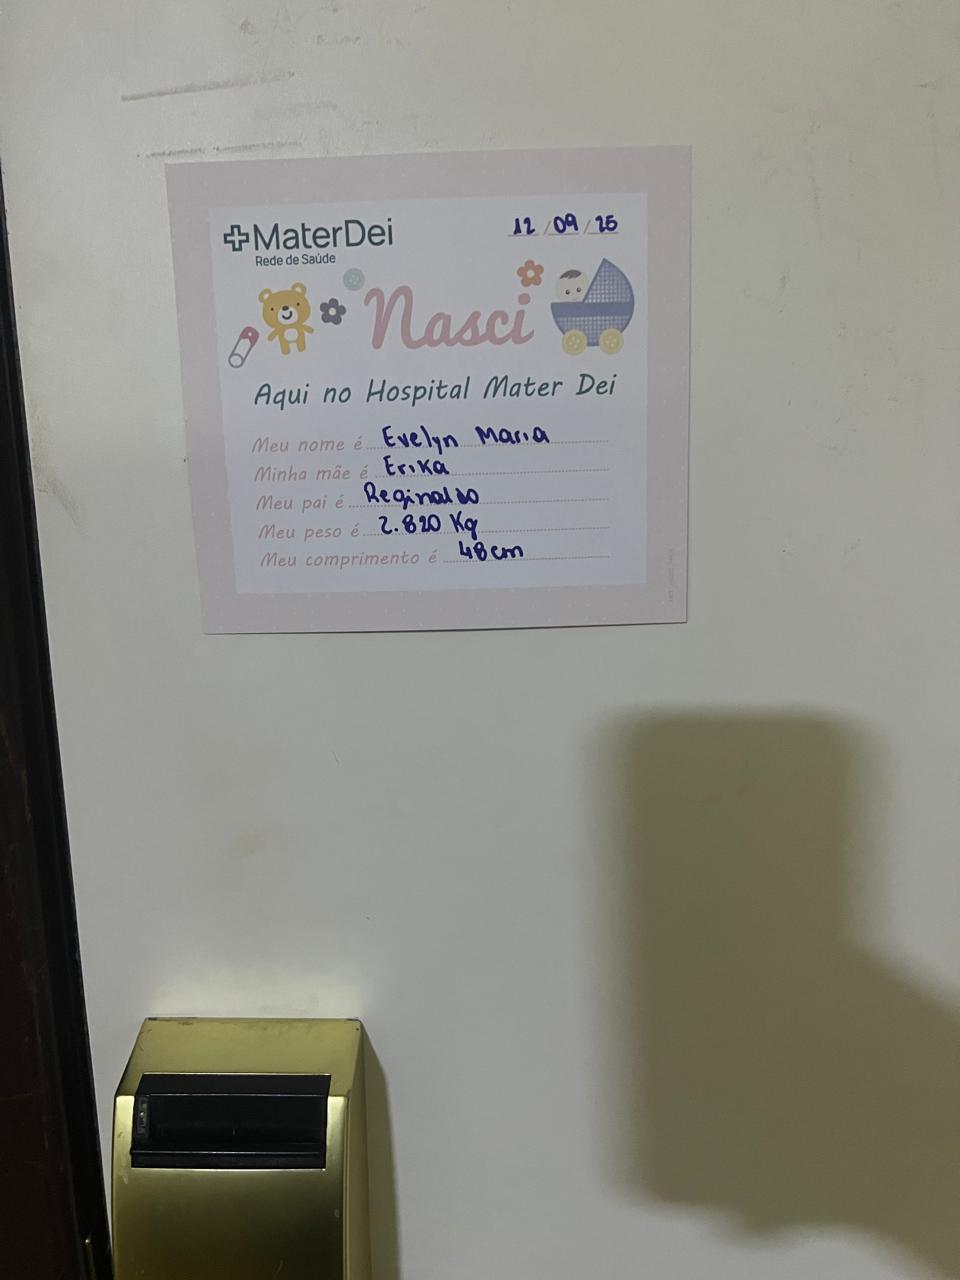 MaterDei
Rede de Saúde
12/09/25
Nasci
Aqui no Hospital Mater Dei
Meu nome é Evelyn Maria
Minha mãe é Erika
Meu pai é Reginaldo
Meu peso é 2.820 Kg
Meu comprimento é 48cm